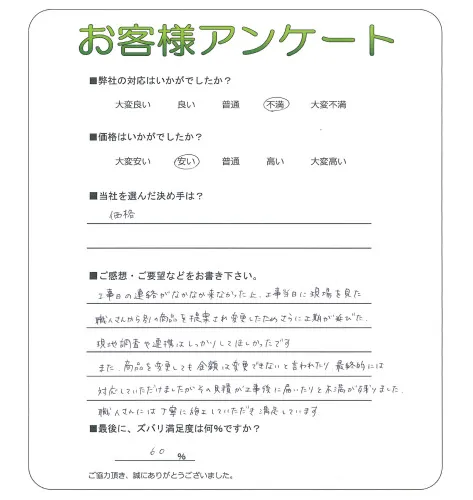 お客様アンケート
■弊社の対応はいかがでしたか？
大変良い 良い 普通 不満 大変不満
■価格はいかがでしたか？
大変安い 安い 普通 高い 大変高い
■当社を選んだ決め手は？
価格
■ご感想・ご要望などをお書き下さい。
工事日の連絡がなかなか来なかった上、工事当日に現場を見た
職人さんから別の商品を提案され変更したためさらに工期が延びた．
現地調査や連携はしっかりしてほしかったです
また、商品を変更しても金額は変更できないと言われたり 最終的には
対応していただけましたがその見積が工事後に届いたりと不満が残りました．
職人さんには丁寧に施工していただき満足しています
■最後に、ズバリ満足度は何％ですか？
60 ％
ご協力頂き、誠にありがとうございました。